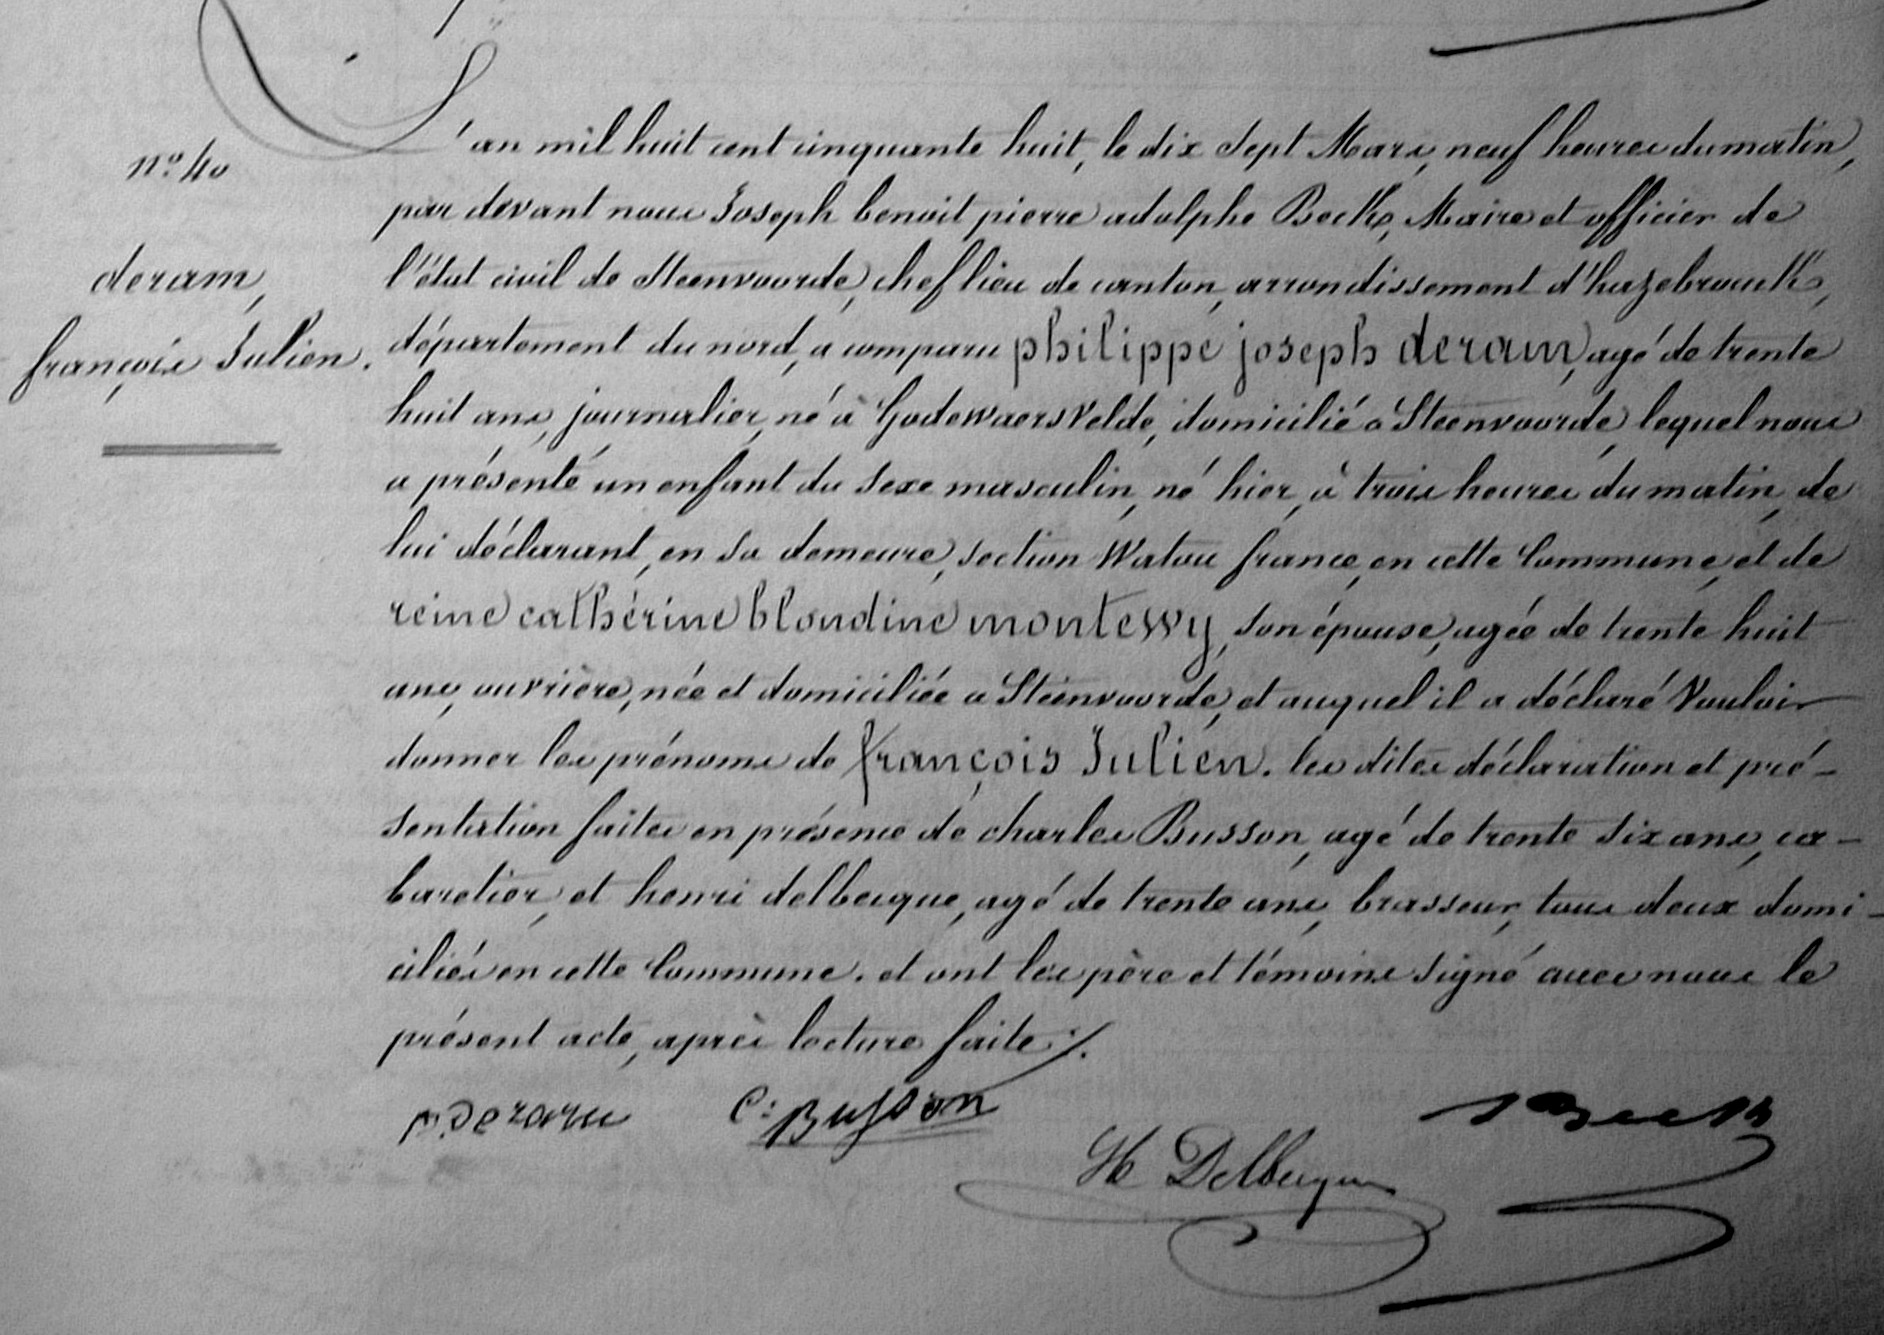 n.º 40
deram,
françois Julien.
L'an mil huit cent cinquante huit, le dix sept Mars, neuf heures du matin,
par devant nous Joseph benoit pierre adolphe Beck, Maire et officier de
l'état civil de Steenvoorde, chef lieu de canton, arrondissement d'hazebrouck,
département du nord, a comparu philippe joseph deram, agé de trente
huit ans, journalier, né à Godewaersvelde, domicilié a Steenvoorde, lequel nous
a présenté un enfant du sexe masculin, né hier, à trois heures du matin, de
lui déclarant, en sa demeure, section Watou france, en cette Commune, et de
reine cathérine blondine montewy, son épouse, agée de trente huit
ans, ouvrière, née et domiciliée a Steenvoorde, et auquel il a déclaré Vouloir
donner les prénoms de françois Julien. les dites déclaration et pré-
sentation faites en présence de charles Busson, agé de trente six ans, ca-
baretier, et henri delbecque, agé de trente ans, brasseur, tous deux domi-
ciliés en cette Commune. et ont les père et témoins signé avec nous le
présent acte, après lecture faite ./.
p. Deram C: Busson
Beck
H Delbecque